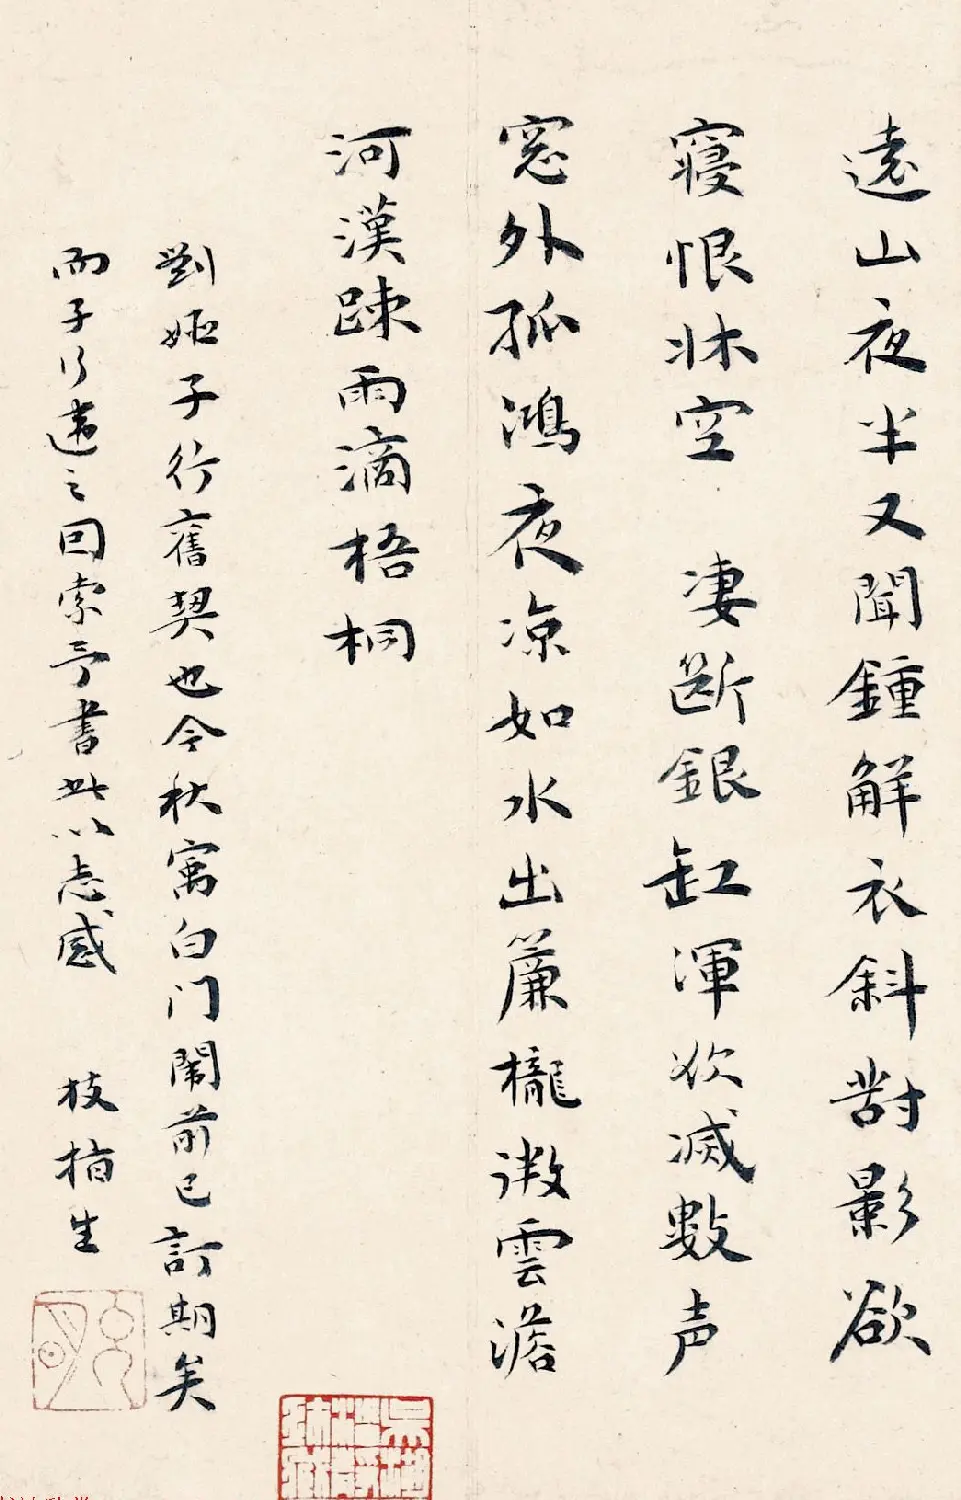 遠山夜半又聞鍾解衣斜對影欲
寢恨牀空 凄斷銀缸渾欲滅數声
窓外孤鴻夜凉如水出簾櫳微雲澹
河漢踈雨滴梧桐
劉姬子行舊契也今秋寓白门闱前已訂期矣
而子行違之回索予書此以志感 枝指生